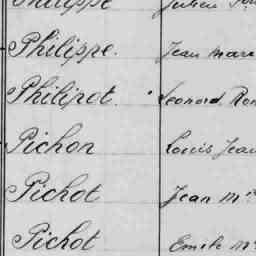 Philippe Julien
Philippe. Jean Marc
Philipot. Leonard
Pichon Louis Jean
Pichot Jean M
Pichot Emile